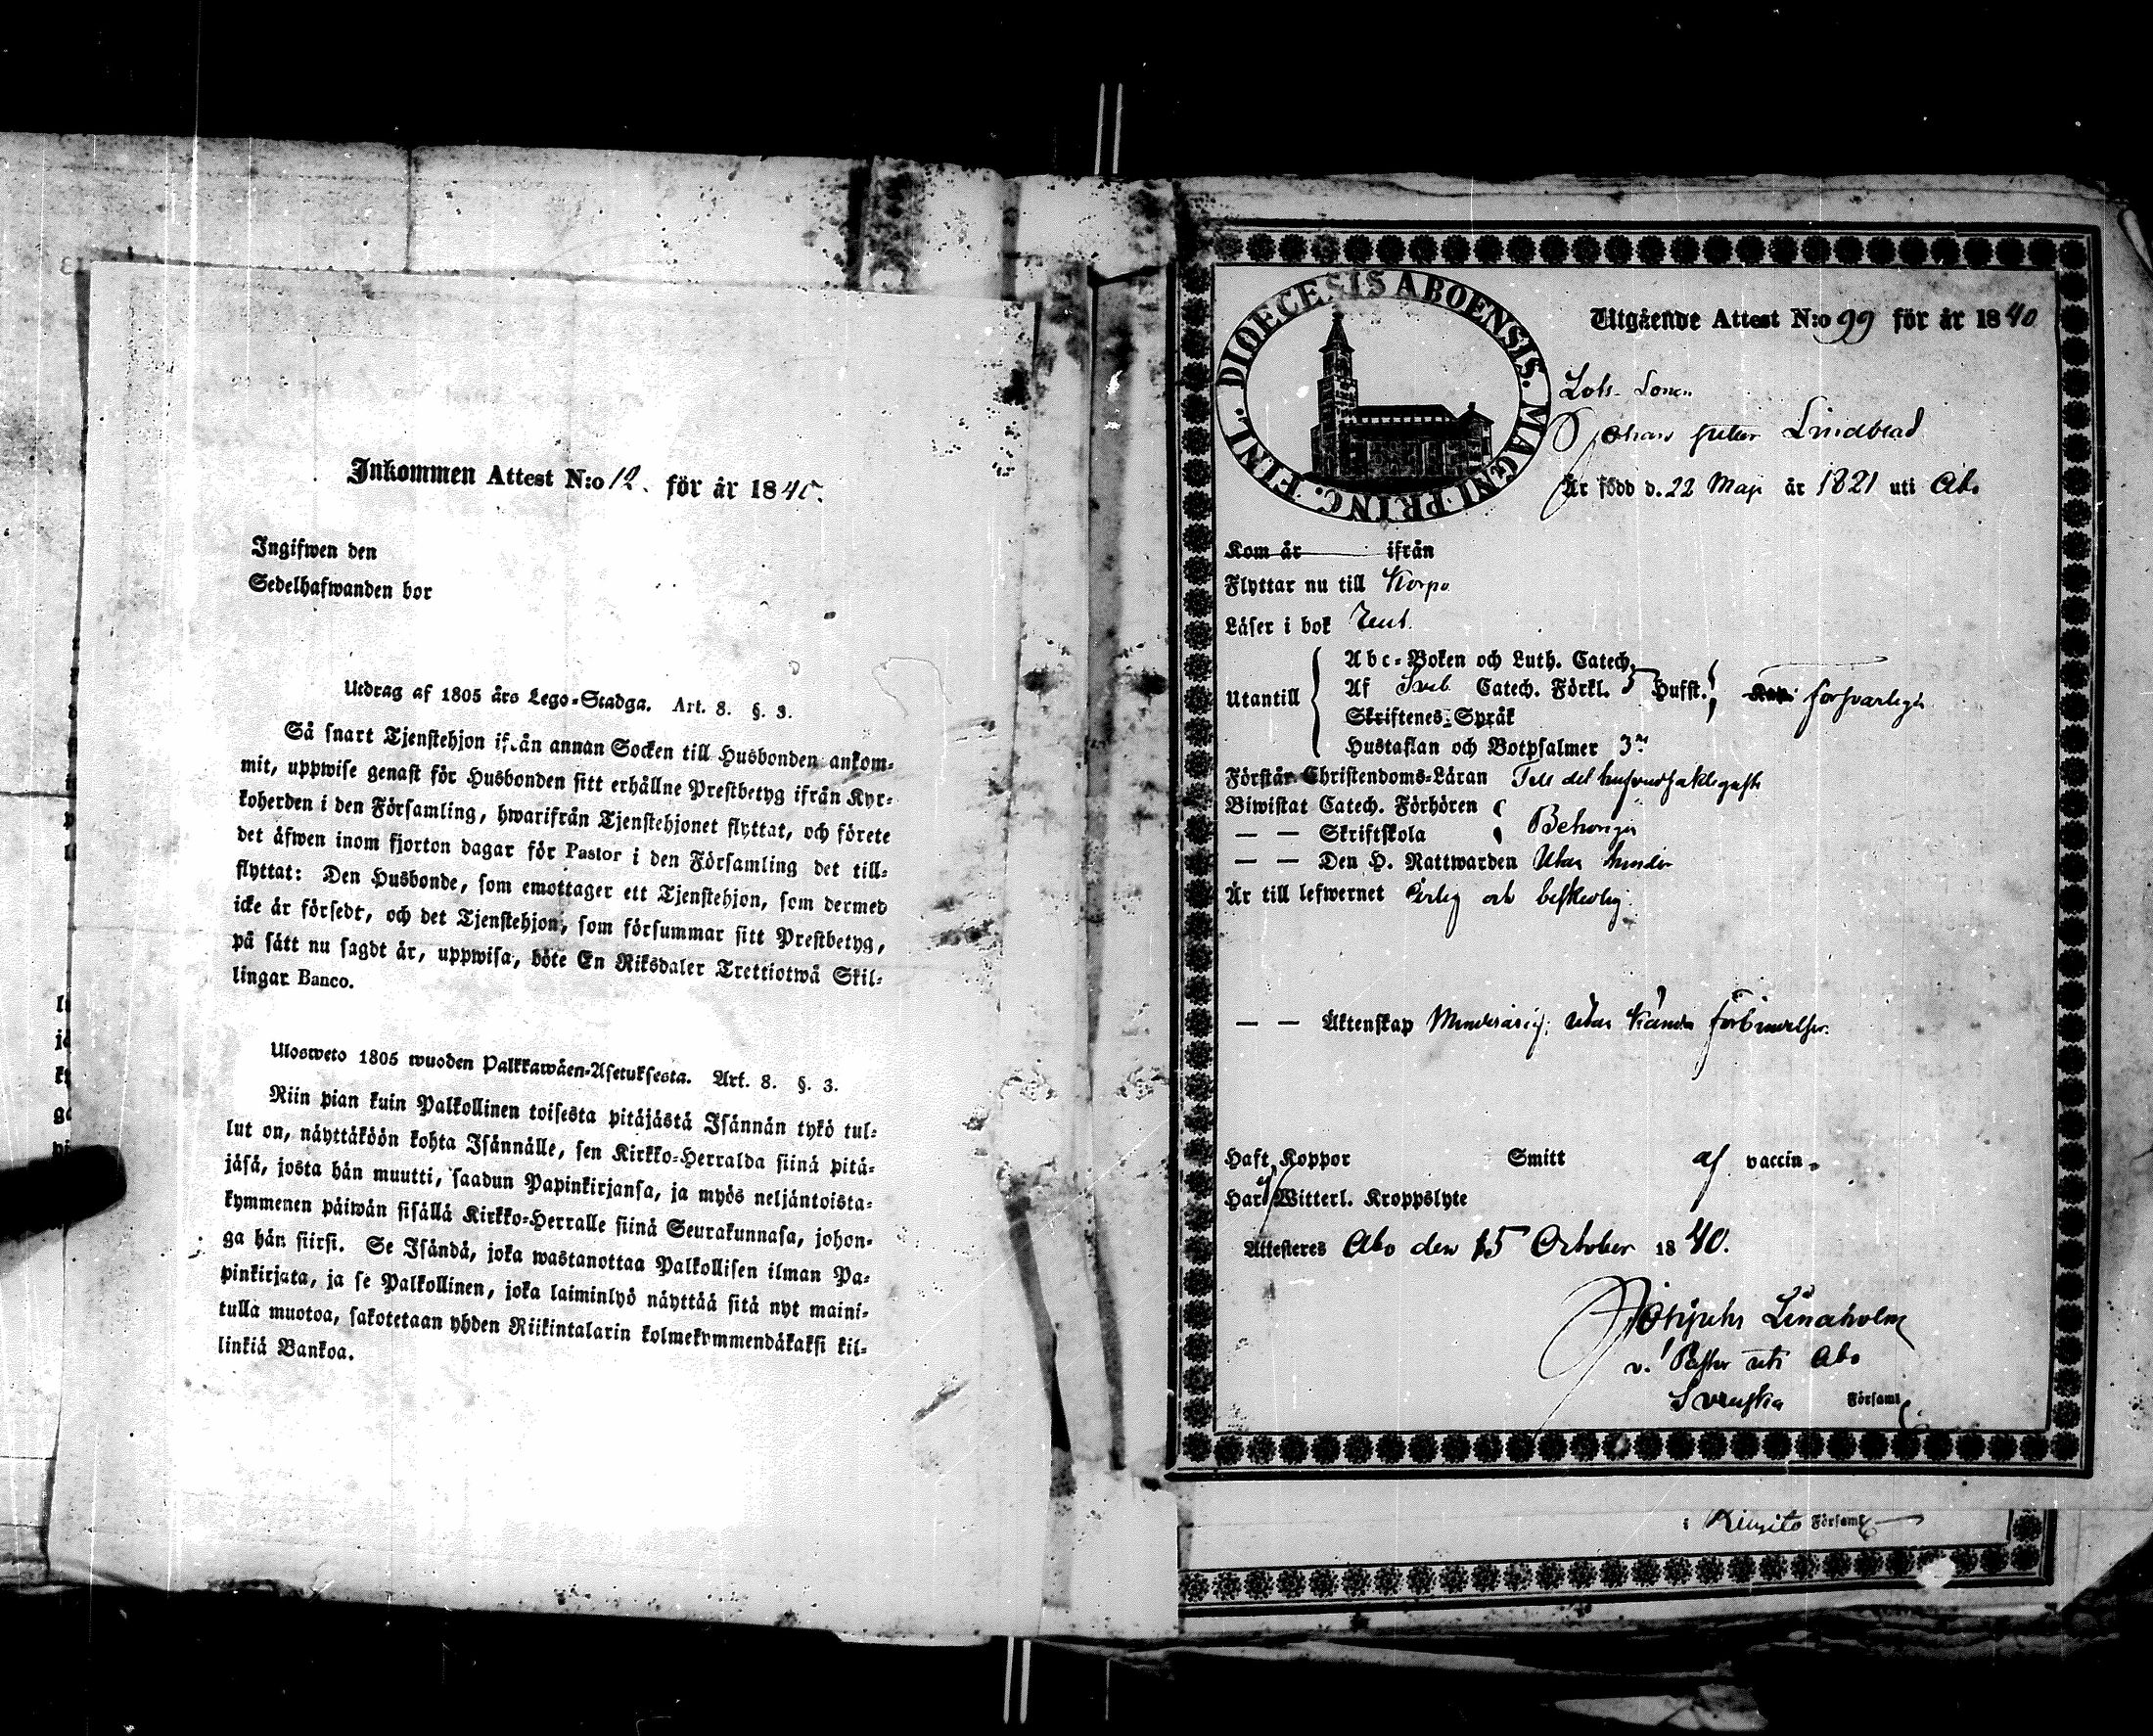 Inkommen Attest N:o 12. för år 1840.
Ingifwen den
Sedelhafwanden bor
Utdrag af 1805 års Lego-Stadga. Art. 8. §. 3.
Så snart Tjenstehjon ifrån annan Socken till Husbonden ankom-
mit, uppwise genast för Husbonden sitt erhållne Prestbetyg ifrån Kyr-
koherden i den Församling, hwarifrån Tjenstehjonet flyttat, och förete
det äfwen inom fjorton dagar för Pastor i den Församling det till-
flyttat: Den Husbonde, som emottager ett Tjenstehjon, som dermed
icke är försedt, och det Tjenstehjon, som försummar sitt Prestbetyg,
på sätt nu sagdt är, uppwisa, böte En Riksdaler Trettiotwå Skil-
lingar Banco.
Ulosweto 1805 wuoden Palkkawäen-Asetuksesta. Art. 8. §. 3.
Niin pian kuin Palkollinen toisesta pitäjästä Isännän tykö tul-
lut on, näyttäköön kohta Isännälle, sen Kirkko-Herralda siinä pitä-
jäsä, josta hän muutti, saadun Papinkirjansa, ja myös neljäntoista-
kymmenen päiwän sisällä Kirkko-Herralle siinä Seurakunnasa, johon-
ga hän siirsi. Se Isändä, joka wastanottaa Palkollisen ilman Pa-
pinkirjata, ja se Palkollinen, joka laiminlyö näyttää sitä nyt maini-
tulla muotoa, sakotetaan yhden Riikintalarin kolmekymmendäkaksi kil-
linkiä Bankoa.
DIOECESIS ABOENSIS. MAGNI PRINC. FINL.
Utgående Attest N:o 99 för år 1840
Lots-
Johan Peter Lindblad
Är född d. 22 Maji år 1821 uti Åbo
Kom år ifrån
Flyttar nu till Korpo
Läser i bok rent.
Abc-Boken och Luth. Catech.
Utantill Af Sveb. Catech. Förkl. 5 Hufst. försvarligt
Skriftenes-Språk
Hustaflan och Botpsalmer 3ne
Förstår Christendoms-Läran Till det hufvudsakligaste
Biwistat Catech. Förhören
— — Skriftskola Behörigen
— — Den H. Nattwarden Utan hinder
Är till lefwernet Ärlig och beskedlig.
— — Äktenskap Minderårig, utan kända förbindelser.
Haft Koppor Smitt af vaccin
Har ej Witterl. Kroppslyte
Attesteras Åbo den 15 October 1840.
Lindholm
v. Pastor uti Åbo
Svenska Församl
i Kimito Församl